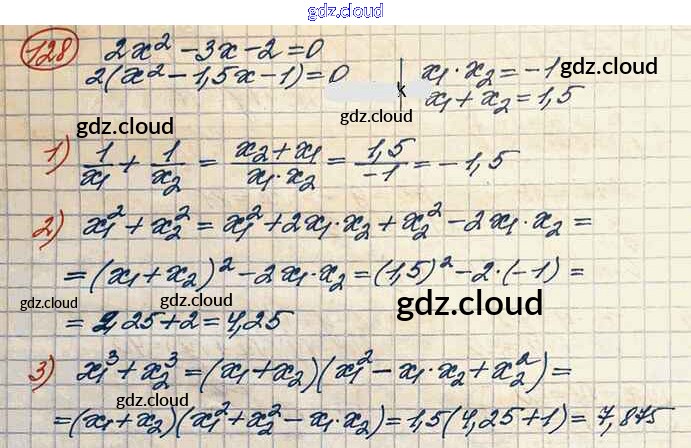 gdz.cloud
128 2x² - 3x - 2 = 0
2(x² - 1,5x - 1) = 0
x₁·x₂ = -1 gdz.cloud
x
x₁ + x₂ = 1,5
gdz.cloud gdz.cloud
1) 1/x₁ + 1/x₂ = (x₂ + x₁)/(x₁·x₂) = 1,5/-1 = -1,5
2) x₁² + x₂² = x₁² + 2x₁·x₂ + x₂² - 2x₁·x₂ =
= (x₁ + x₂)² - 2x₁·x₂ = (1,5)² - 2·(-1) =
gdz.cloud gdz.cloud gdz.cloud
= 2,25 + 2 = 4,25
3) x₁³ + x₂³ = (x₁ + x₂)(x₁² - x₁·x₂ + x₂²) =
gdz.cloud gdz.cloud
= (x₁ + x₂)(x₁² + x₂² - x₁·x₂) = 1,5(4,25 + 1) = 7,875